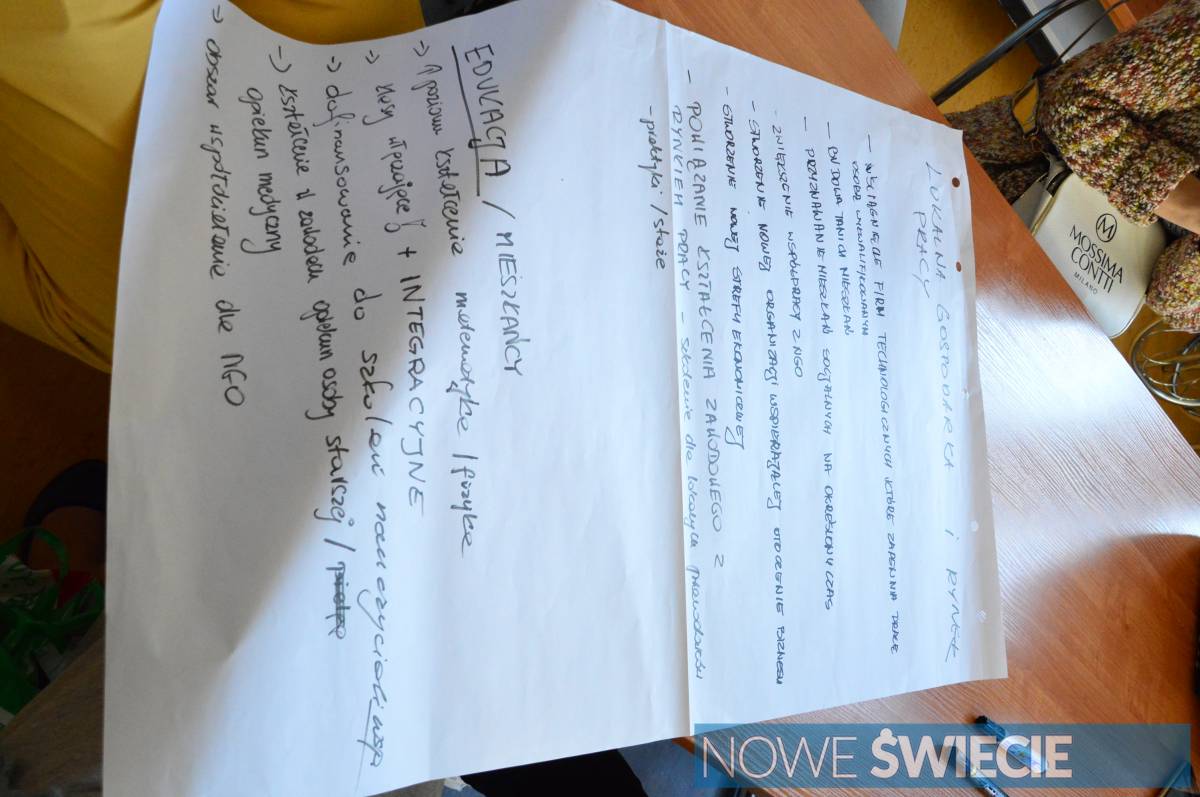 LOKALNA GOSPODARKA I RYNEK
PRACY
— WŚCIĄGNIĘCIE FIRM TECHNOLOGICZNYCH KTÓRE ZAPEWNIA PRACE
OSOBĄ WYKWALIFIKOWANYM
— BUDOWA TANICH MIESZKAŃ
— PRZYZNAWANIE MIESZKAŃ SOCJALNYCH NA OKREŚLONY CZAS
- ZWIĘKSZENIE WSPÓŁPRACY Z NGO
- STWORZENIE NOWEJ ORGANIZACJI WSPIERAJĄCEJ OTOCZENIE BIZNESU
- STWORZENIE NOWEJ STREFY EKONOMICZNEJ
- POWIĄZANIE KSZTAŁCENIA ZAWODOWEGO Z
RYNKIEM PRACY - szkolenie dla lokalnych pracodawców
- praktyki / staże
EDUKACJA / MIESZKAŃCY
-> ↑ poziomu kształcenia matematyka / fizyka
-> klasy + INTEGRACYJNE
-> dofinansowanie do szkoleń nauczycieli
-> kształcenie w zawodach opiekun osoby starszej /
opiekun medyczny
-> obszar współdziałania dla NGO
MOSSIMA
CONTTI
MILANO
NOWE ŚWIECIE